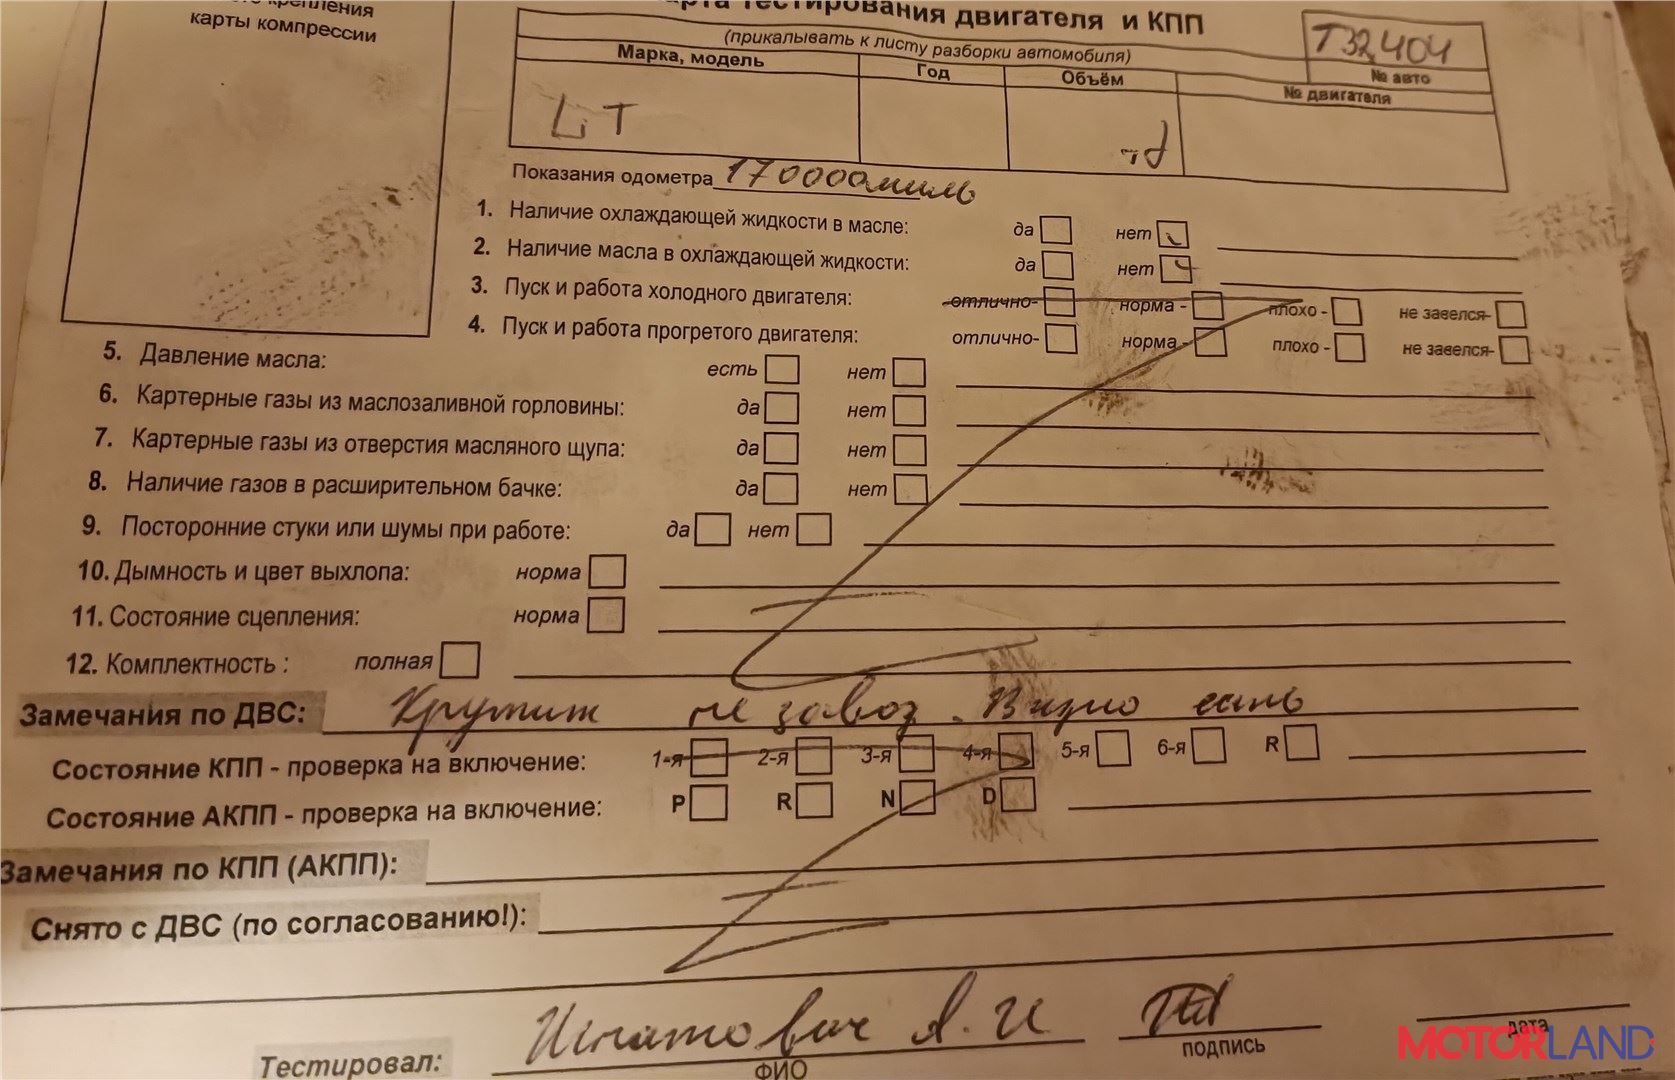 крепления
карты компрессии
Карта тестирования двигателя и КПП
(прикалывать к листу разборки автомобиля)
T32404
№ авто
Марка, модель Год Объём № двигателя
LT
Показания одометра 170000миль
1. Наличие охлаждающей жидкости в масле: да нет
2. Наличие масла в охлаждающей жидкости: да нет
3. Пуск и работа холодного двигателя: отлично- норма - плохо - не завелся-
4. Пуск и работа прогретого двигателя: отлично- норма - плохо - не завелся-
5. Давление масла: есть нет
6. Картерные газы из маслозаливной горловины: да нет
7. Картерные газы из отверстия масляного щупа: да нет
8. Наличие газов в расширительном бачке: да нет
9. Посторонние стуки или шумы при работе: да нет
10. Дымность и цвет выхлопа: норма
11. Состояние сцепления: норма
12. Комплектность : полная
Замечания по ДВС: Крутит не завод. Видио есть
Состояние КПП - проверка на включение: 1-я 2-я 3-я 4-я 5-я 6-я R
Состояние АКПП - проверка на включение: P R N D
Замечания по КПП (АКПП):
Снято с ДВС (по согласованию!):
Тестировал: Игнатович А.И
ФИО подпись дата
MOTORLAND